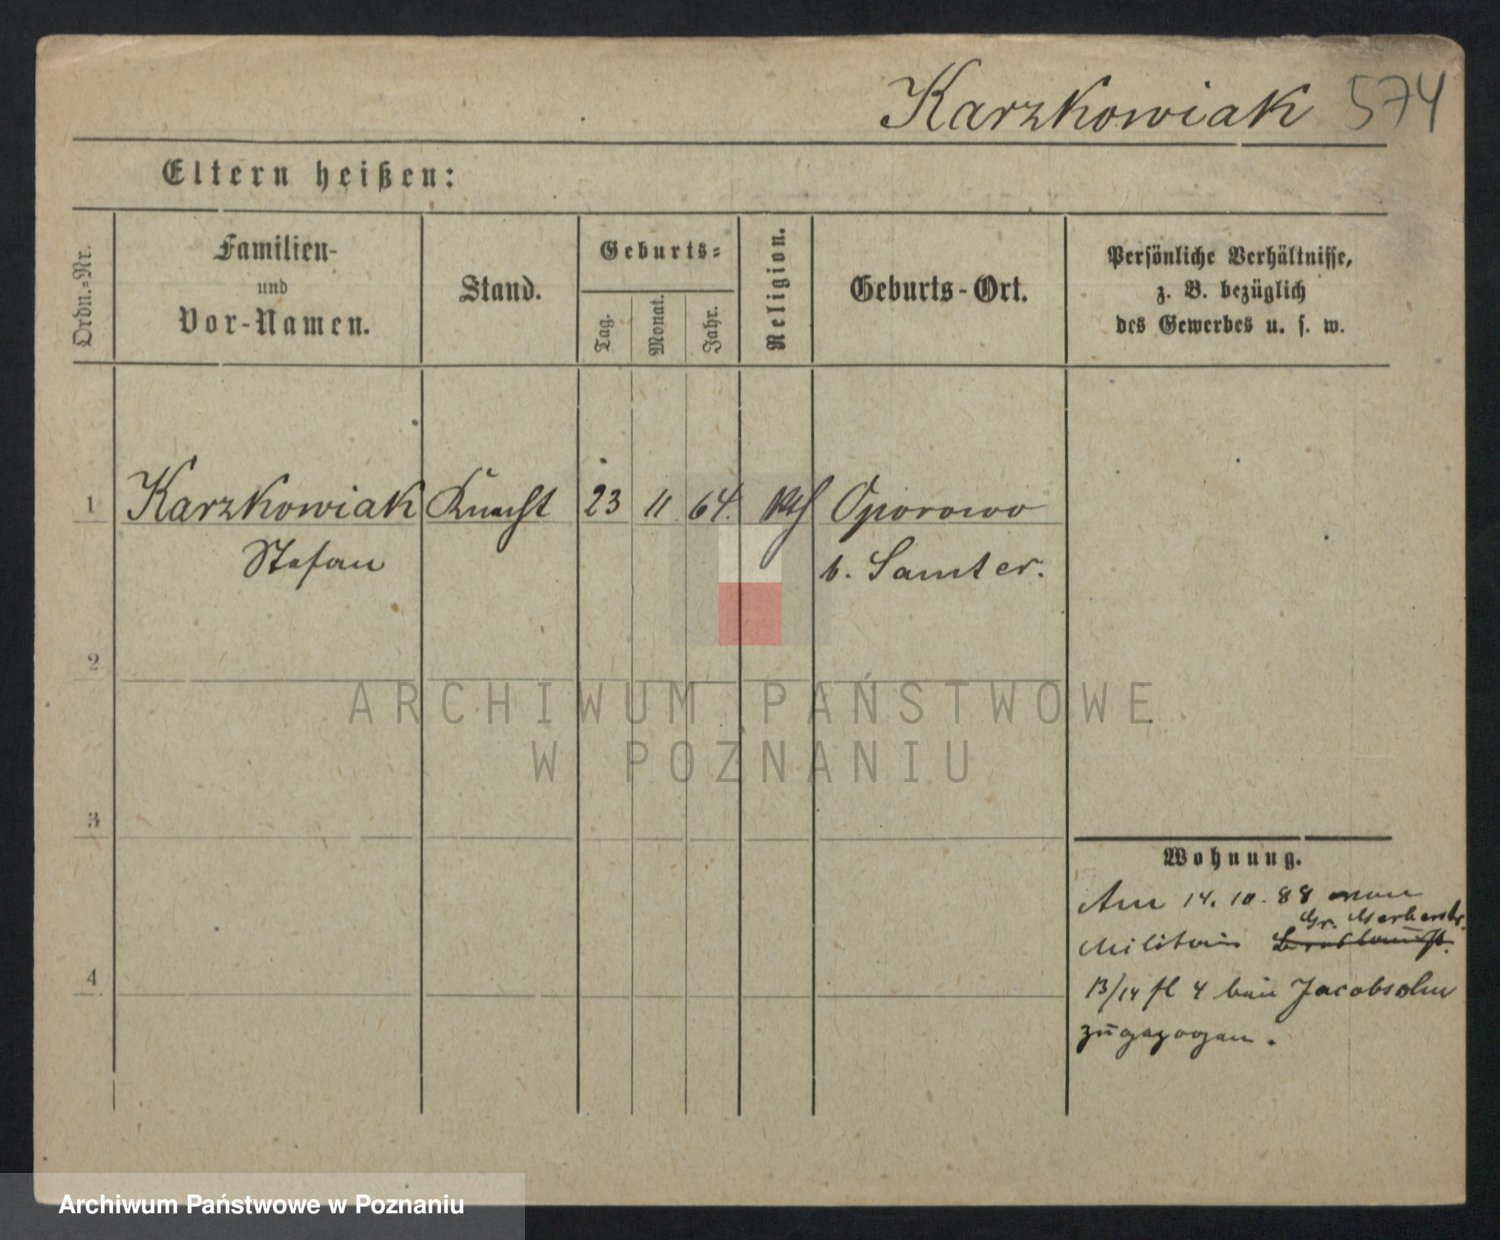 Karzkowiak 574
Eltern heißen:
Ordn.-Nr.
Familien-
und
Vor-Namen.
Stand.
Geburts-
Tag.
Monat.
Jahr.
Religion.
Geburts-Ort.
Persönliche Verhältnisse,
z. B. bezüglich
des Gewerbes u. s. w.
1 Karzkowiak Knecht 23 11 64. kth Oporowo
Stefan b. Samter.
2
3
4
Wohnung.
Am 14. 10. 88 vom
Gr. Gerberstr.
Militair
13/14 fl 4 bei Jacobsohn
zugezogen.
ARCHIWUM PAŃSTWOWE
W POZNANIU
Archiwum Państwowe w Poznaniu